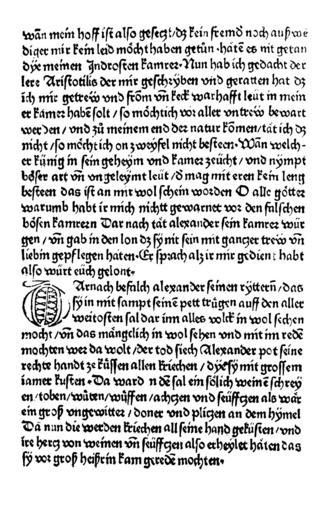 wañ mein hoff ist also gesetzt/dz kein fremd noch außwe
diger mir kein leid möcht haben getün · hatẽ es nit getan
dye meinen Indrosten kamrer · Nun hab ich gedacht der
lere Aristotilis der mir geschryben vnd geratten hat dz
ich mir getrew vnd from vñ keck warhafft leüt in mein
er kamer habẽ solt / so möchtich vor aller vntrew bewart
werden / vnd zů meinem end der natur kömen / tät ich dz
nicht / so möcht ich on zweyfel nicht besteen · Wañ welch-
er künig in sein geheym vnd kamer zeücht / vnd nympt
böser art vñ vngeleymt leüt / d mag mit eren kein leng
besteen das ist an mir wol schein worden O alle götter
warumb habt ir mich nichtt gewarnet vor den falschen
bösen kamrern Dar nach tät alexander sein kamrer wür
gen / vñ gab in den lon dz sy nit sein mit gantzer trew vñ
liebin gepflegen haten · Er sprach alz ir mir gedient habt
also würt eüch gelont ·
DArnach befalch alexander seinen ryttern / das
sy in mit sampt seinẽ pett trůgen auff den aller
weitosten sal dar im alles volck in wol sechen
mocht / vñ das mänglich in wol sehen vnd mit im redẽ
mochten wer da wolt / der tod siech Alexander pot seine
rechte handt zẽ küssen allen kriechen / dye sy mit grossem
iamer kusten · Da ward in dẽ sal ein sölich weinẽ schrey
en / toben / wůten / wůffen / achczen vnd seüffczen als wär
ein groß vngewitter / doner vnd pliczen an dem hymel
Da nun die werden kriechen all seine hand geküsten / vnd
ire hercz von weinen vñ seüffczen also erheylet häten das
sy vor groß heißrin kam geredẽ mochten ·